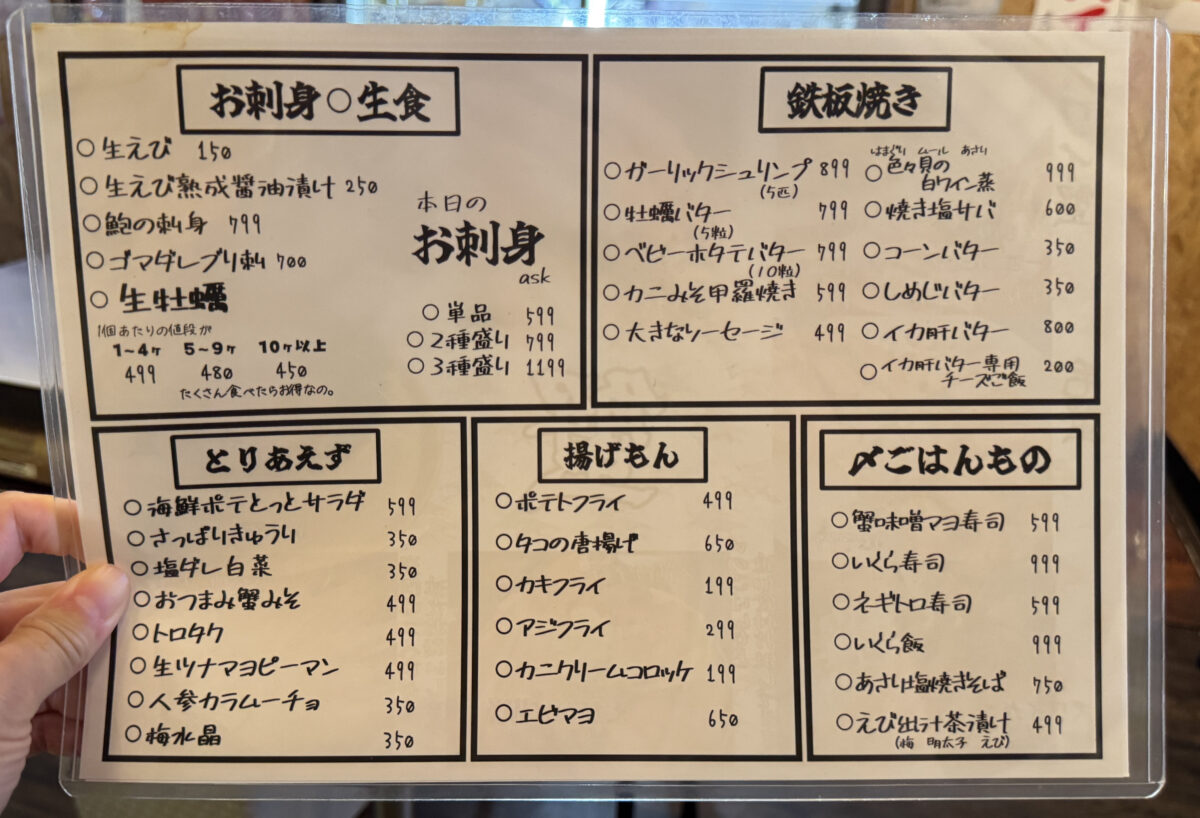 お刺身○生食
○生えび 150
○生えび熟成醤油漬け 250
○鮑の刺身 799
○ゴマダレブリ刺 700
○生牡蠣
1個あたりの値段が
1~4ヶ 5~9ヶ 10ヶ以上
499 480 450
たくさん食べたらお得なの。
本日の
お刺身
ask
○単品 599
○2種盛り 799
○3種盛り 1199
鉄板焼き
○ガーリックシュリンプ 899
(5匹)
○牡蠣バター 799
(5粒)
○ベビーホタテバター 799
(10粒)
○カニみそ甲羅焼き 599
○大きなソーセージ 499
はまぐり ムール あさり
○色々貝の
白ワイン蒸 999
○焼き塩サバ 600
○コーンバター 350
○しめじバター 350
○イカ肝バター 800
○イカ肝バター専用
チーズご飯 200
とりあえず
○海鮮ポテとっとサラダ 599
○さっぱりきゅうり 350
○塩ダレ白菜 350
○おつまみ蟹みそ 499
○トロタク 499
○生ツナマヨピーマン 499
○人参カラムーチョ 350
○梅水晶 350
揚げもん
○ポテトフライ 499
○タコの唐揚げ 650
○カキフライ 199
○アジフライ 299
○カニクリームコロッケ 199
○エビマヨ 650
〆ごはんもの
○蟹味噌マヨ寿司 599
○いくら寿司 999
○ネギトロ寿司 599
○いくら飯 999
○あさり塩焼きそば 750
○えび出汁茶漬け 499
(梅 明太子 えび)